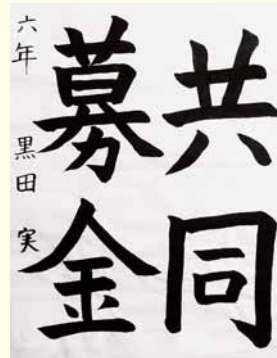 共同
募金
六年 黒田 実